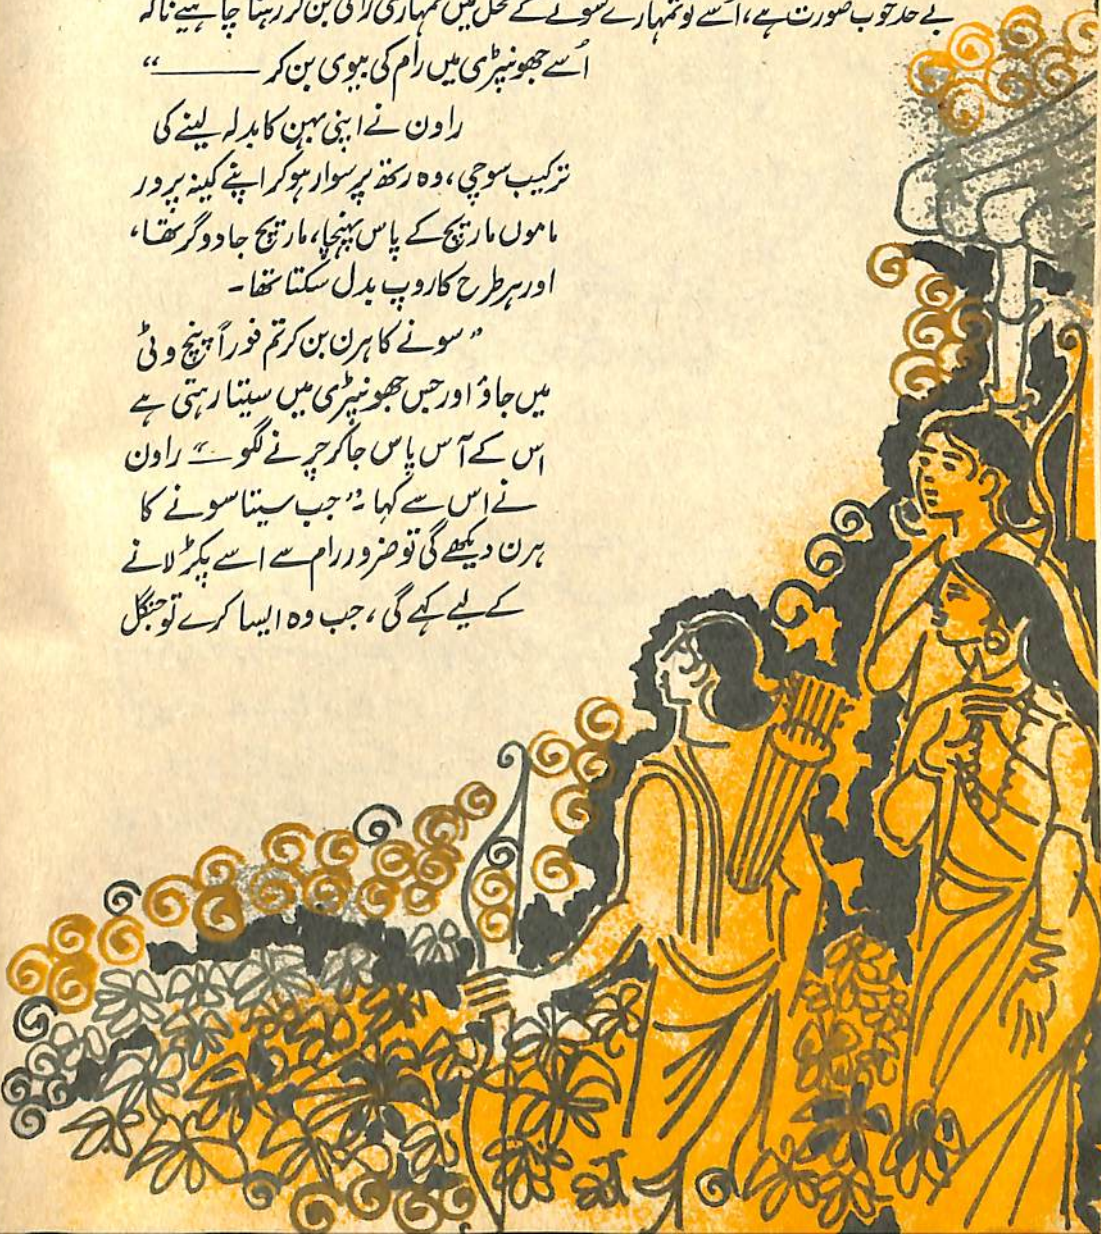 بے حد خوب صورت ہے، اُسے تو تمہارے سونے کے محل میں تمہاری رانی بن کر رہنا چاہیے ناکہ
اُسے جھونپڑی میں رام کی بیوی بن کر ———“
راون نے اپنی بہن کا بدلہ لینے کی
ترکیب سوچی، وہ رتھ پر سوار ہو کر اپنے کینہ پرور
ماموں ماریچ کے پاس پہنچا، ماریچ جادوگر تھا،
اور ہر طرح کا روپ بدل سکتا تھا۔
”سونے کا ہرن بن کر تم فوراً پنچ وٹی
میں جاؤ اور جس جھونپڑی میں سیتا رہتی ہے
اس کے آس پاس جا کر چرنے لگو—“ راون
نے اس سے کہا۔ ”جب سیتا سونے کا
ہرن دیکھے گی تو ضرور رام سے اسے پکڑ لانے
کے لیے کہے گی، جب وہ ایسا کرے تو جنگل